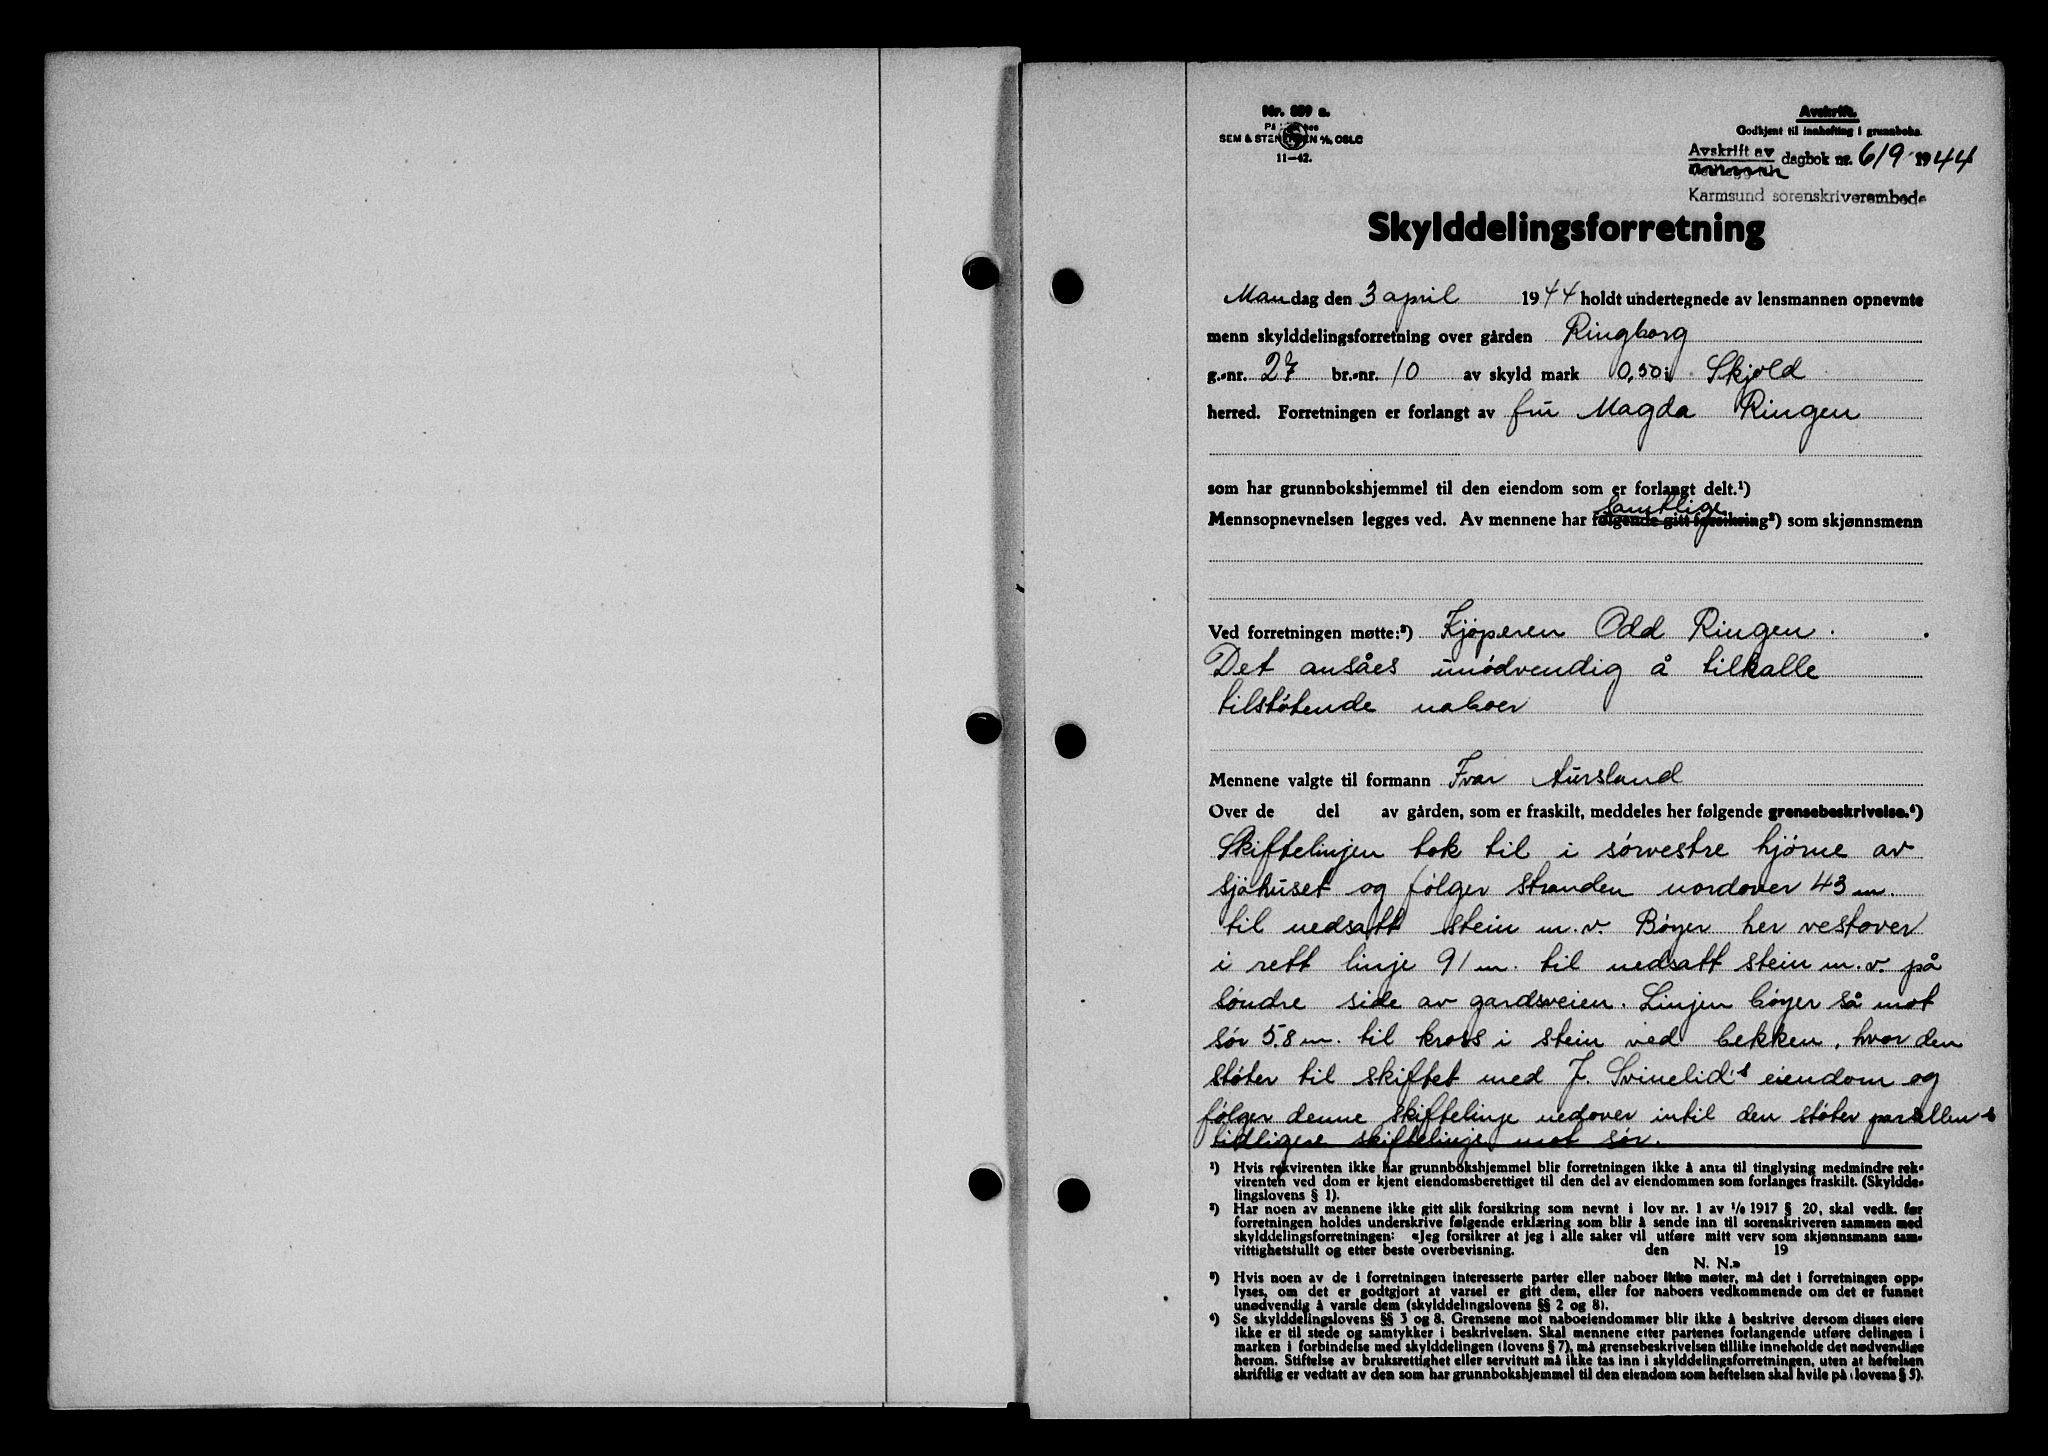 Nr. 889 a.
SEM & STENERSEN A/S, OSLO
11—42.
Avskrift.
Godkjent til innhefting i grunnboka.
Avskrift av
dagbok nr. 619 1944
Karmsund sorenskriverembede
Skylddelingsforretning
Mandag den 3 april 1944 holdt undertegnede av lensmannen opnevnte
menn skylddelingsforretning over gården Ringborg
g.-nr. 27 br.-nr. 10 av skyld mark 0,50 i Skjold
herred. Forretningen er forlangt av fru Magda Ringen
som har grunnbokshjemmel til den eiendom som er forlangt delt.¹)
samtlige
Mennsopnevnelsen legges ved. Av mennene har følgende gitt forsikring²) som skjønnsmenn
Ved forretningen møtte:³) Kjøperen Odd Ringen.
Det ansåes unødvendig å tilkalle
tilstøtende naboer
Mennene valgte til formann Ivar Aursland
Over de del av gården, som er fraskilt, meddeles her følgende grensebeskrivelse.⁴)
Skiftelinjen tok til i sørvestre hjørne av
sjøhuset og følger stranden nordover 43 m.
til nedsatt stein m.v. Bøyer her vestover
i rett linje 91 m. til nedsatt stein m.v. på
søndre side av gardsveien. Linjen bøyer så mot
sør 5.8 m. til kross i stein ved bekken, hvor den
støter til skiftet med J. Svinelid's eiendom og
følger denne skiftelinje nedover intil den støter parsellens
tidligere skiftelinje mot sør.
¹) Hvis rekvirenten ikke har grunnbokshjemmel blir forretningen ikke å anta til tinglysing medmindre rek-
virenten ved dom er kjent eiendomsberettiget til den del av eiendommen som forlanges fraskilt. (Skyldde-
lingslovens § 1).
²) Har noen av mennene ikke gitt slik forsikring som nevnt i lov nr. 1 av 1/6 1917 § 20, skal vedk. før
forretningen holdes underskrive følgende erklæring som blir å sende inn til sorenskriveren sammen med
skylddelingsforretningen: «Jeg forsikrer at jeg i alle saker vil utføre mitt verv som skjønnsmann sam-
vittighetsfullt og etter beste overbevisning. den 19
N. N.»
³) Hvis noen av de i forretningen interesserte parter eller naboer ikke møter, må det i forretningen opp-
lyses, om det er godtgjort at varsel er gitt dem, eller for naboers vedkommende om det er funnet
unødvendig å varsle dem (skylddelingslovens §§ 2 og 8).
⁴) Se skylddelingslovens §§ 3 og 8. Grensene mot naboeiendommer blir ikke å beskrive dersom disses eiere
ikke er til stede og samtykker i beskrivelsen. Skal mennene etter partenes forlangende utføre delingen i
marken i forbindelse med skylddelingen (lovens § 7), må grensebeskrivelsen tillike inneholde det nødvendige
herom. Stiftelse av bruksrettighet eller servitutt må ikke tas inn i skylddelingsforretningen, uten at heftelsen
skriftlig er vedtatt av den som har grunnbokshjemmel til den eiendom som heftelsen skal hvile på (lovens § 5).